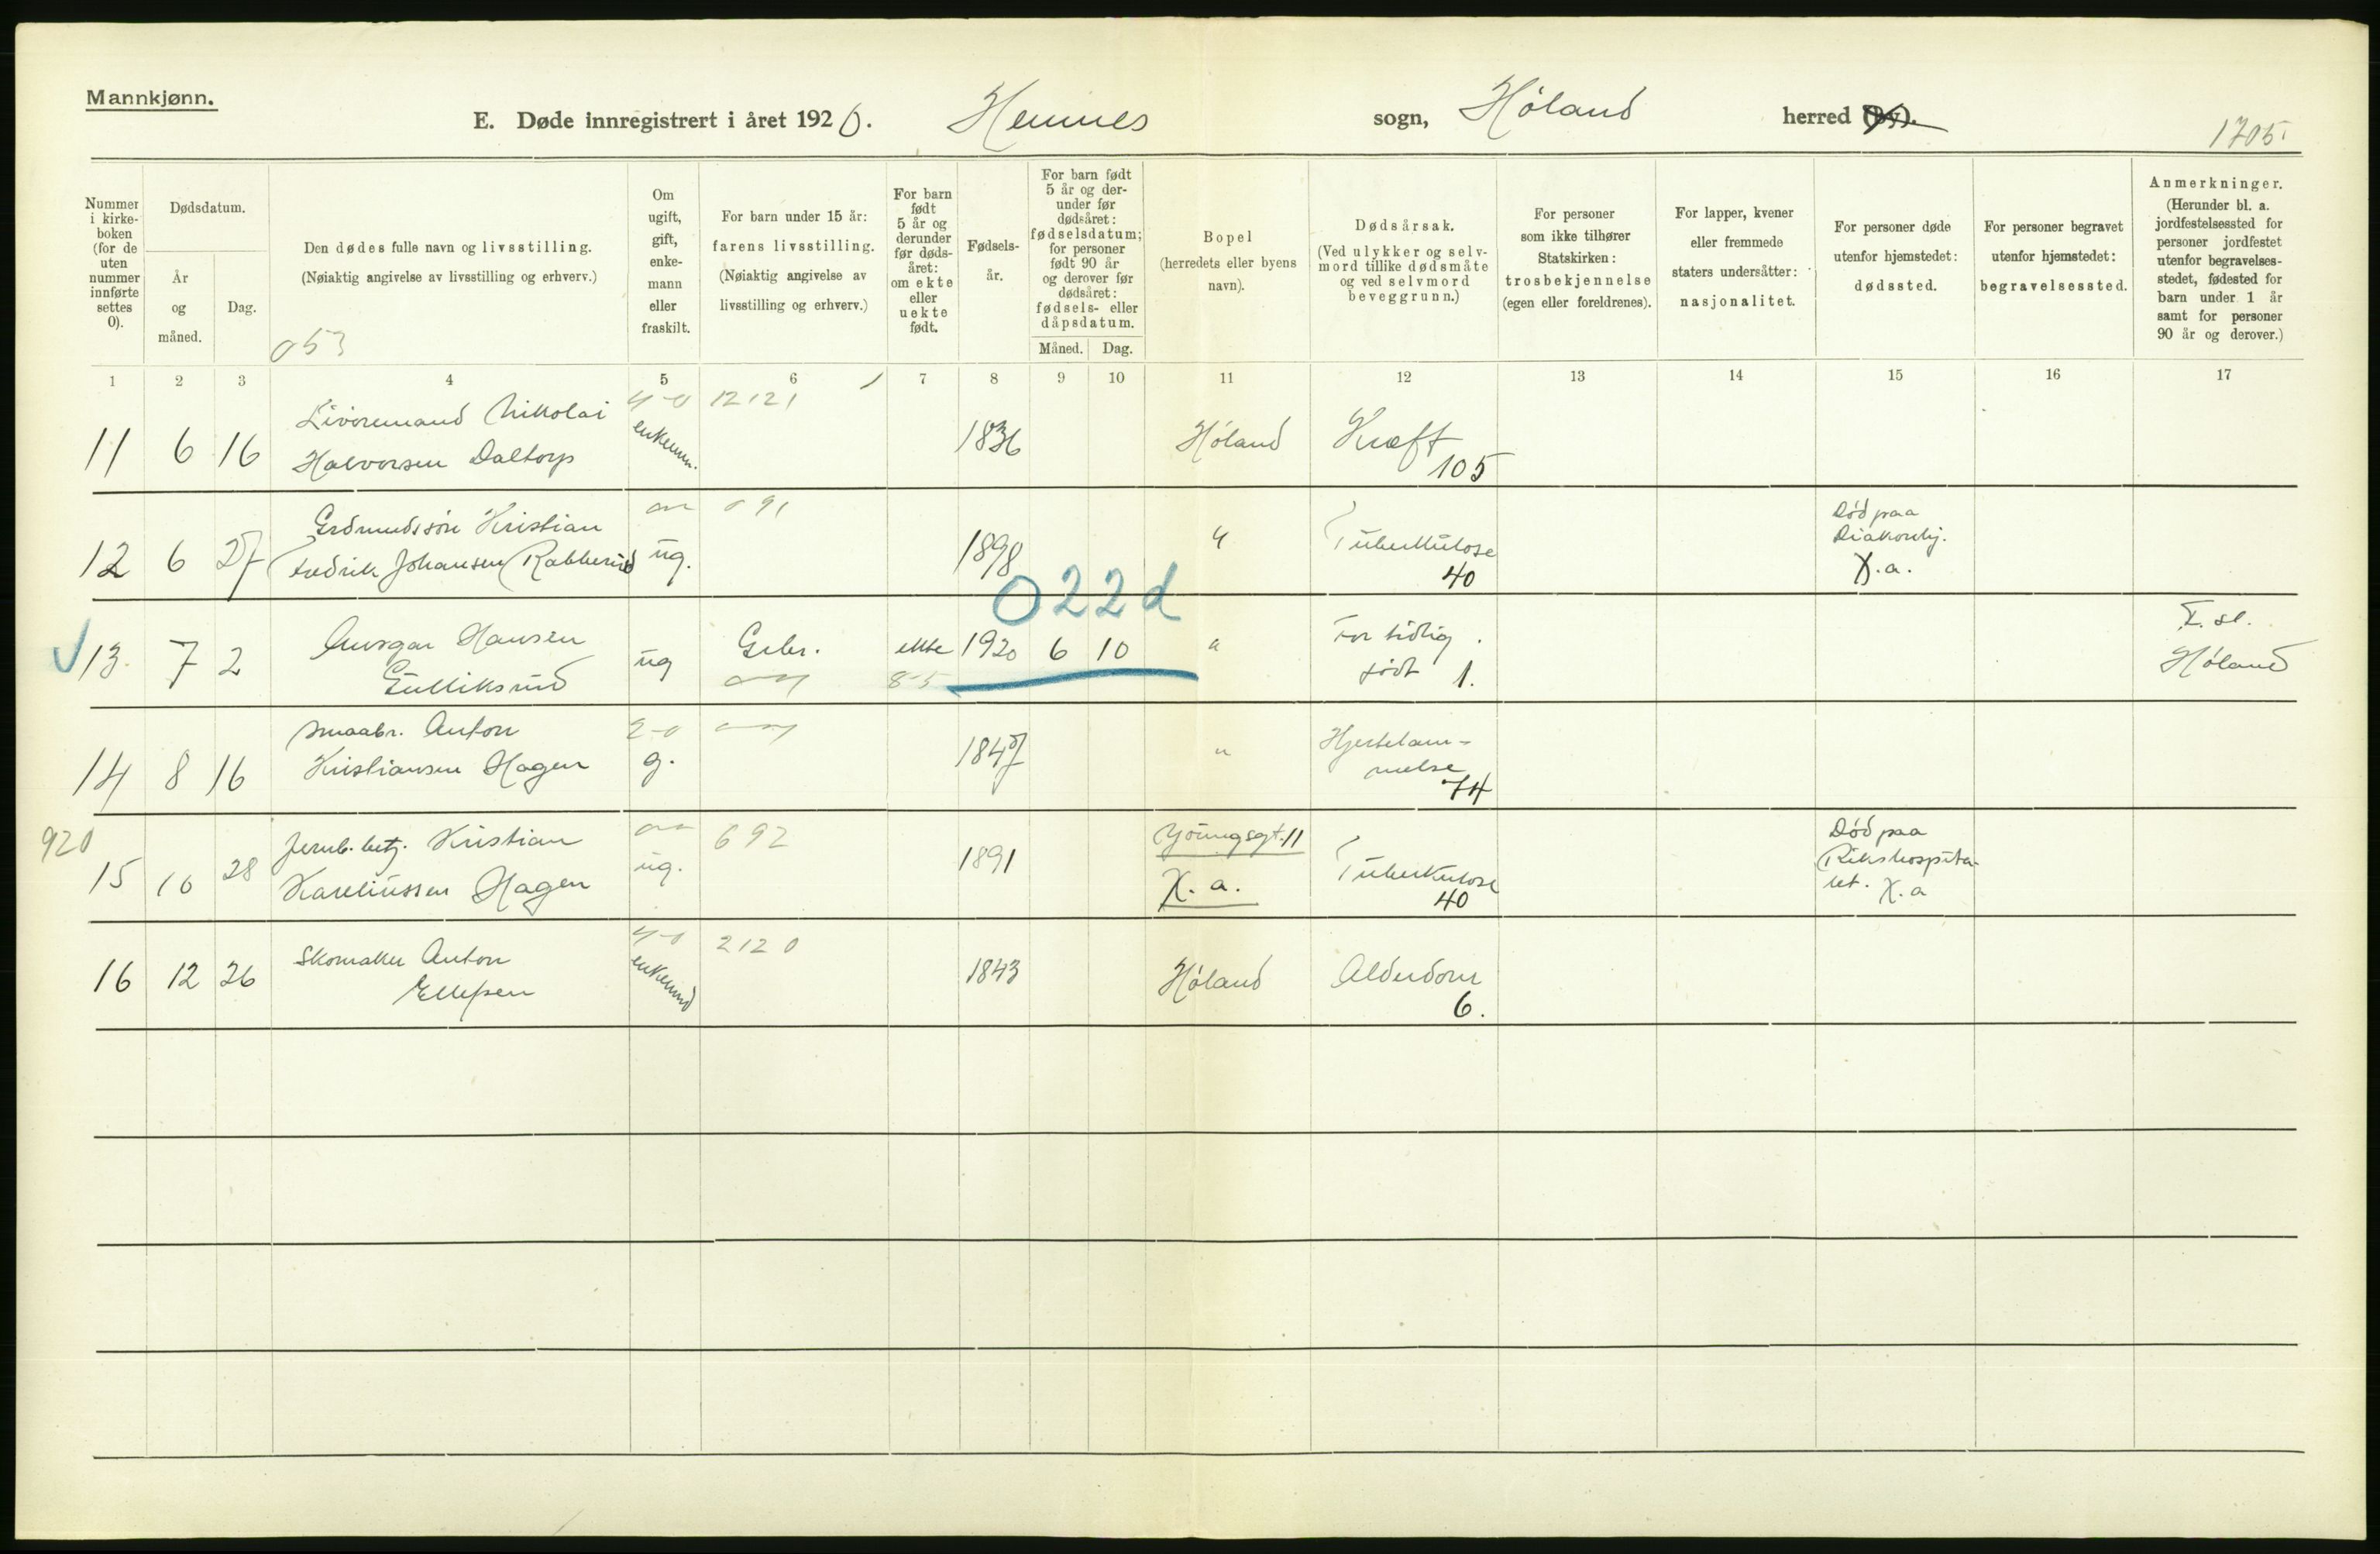 Mannkjønn.
E. Døde innregistrert i året 1920. Hemnes sogn, Høland herred (by).
1705.
Nummer
i kirke-
boken
(for de
uten
nummer
innførte
settes
0).
Dødsdatum.
År
og
måned.
Dag.
Den dødes fulle navn og livsstilling.
(Nøiaktig angivelse av livsstilling og erhverv.)
053
Om
ugift,
gift,
enke-
mann
eller
fraskilt.
For barn under 15 år:
farens livsstilling.
(Nøiaktig angivelse av
livsstilling og erhverv.)
For barn
født
5 år og
derunder
før døds-
året:
om ekte
eller
uekte
født.
Fødsels-
år.
For barn født
5 år og der-
under før
dødsåret:
fødselsdatum;
for personer
født 90 år
og derover før
dødsåret:
fødsels- eller
dåpsdatum.
Måned. Dag.
Bopel
(herredets eller byens
navn).
Dødsårsak.
(Ved ulykker og selv-
mord tillike dødsmåte
og ved selvmord
beveggrunn.)
For personer
som ikke tilhører
Statskirken:
trosbekjennelse
(egen eller foreldrenes).
For lapper, kvener
eller fremmede
staters undersåtter:
nasjonalitet.
For personer døde
utenfor hjemstedet:
dødssted.
For personer begravet
utenfor hjemstedet:
begravelsessted.
Anmerkninger.
(Herunder bl. a.
jordfestelsessted for
personer jordfestet
utenfor begravelses-
stedet, fødested for
barn under 1 år
samt for personer
90 år og derover.)
1 2 3 4 5 6 7 8 9 10 11 12 13 14 15 16 17
12121
Nikolai
11 6 16 Halvorsen Daltorp enkem. 1836 Høland Kræft
105
091
Kristian
Død paa
12 6 27 Fredrik Johansen Rakkerud ug. 1898 " Tuberkulose
Diakonhj.
40 X.a.
022d
13. 7 2 Ansgar Hansen
Gulliksrud ug Gbr. ekte 1920 6 10 " For tidlig
født 1.
85
F. st.
Høland
Smaabr. Anton
14 8 16 Kristiansen Hagen g. 1847 " Hjertelam-
melse
74
920
692
Jernb. betj. Kristian
15 10 28 Kareliussen Hagen ug. 1891 Youngsgt. 11
X. a.
Tuberkulose
40
Død paa
Rikshospita-
let. X.a
2120
Skomaker Anton
16 12 26 Ellefsen enkemd 1843 Høland Alderdom
6.